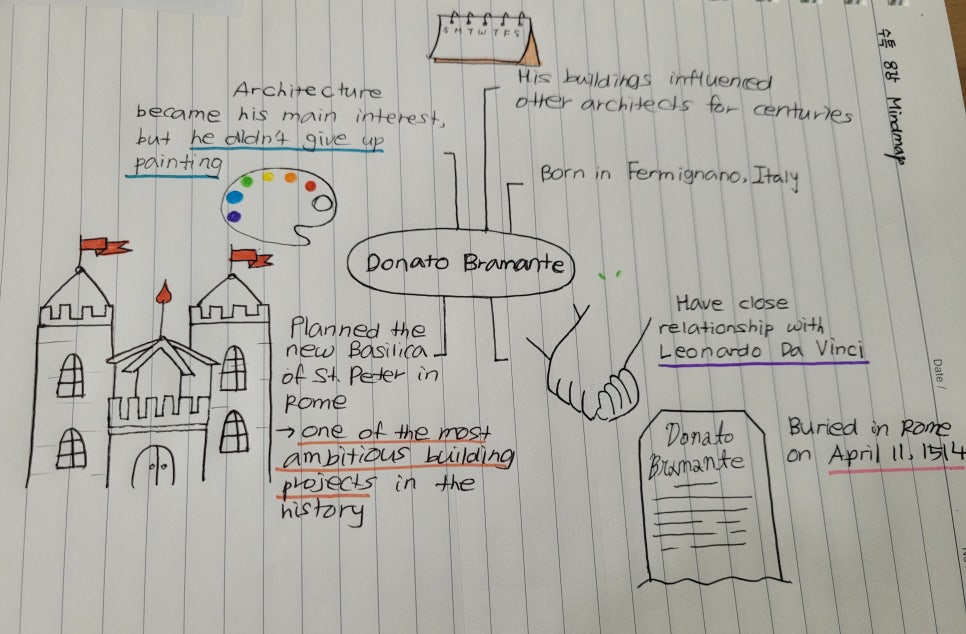 S M T W T F S
수특 8강 Mindmap
His buildings influenced
other architects for centuries
Architecture
became his main interest,
but he didn't give up
painting
Born in Fermignano, Italy
Donato Bramante
Have close
relationship with
Leonardo Da Vinci
Planned the
new Basilica
of St. Peter in
Rome
→ one of the most
ambitious building
projects in the
history
Donato
Bramante
Buried in Rome
on April 11, 1514
Date /